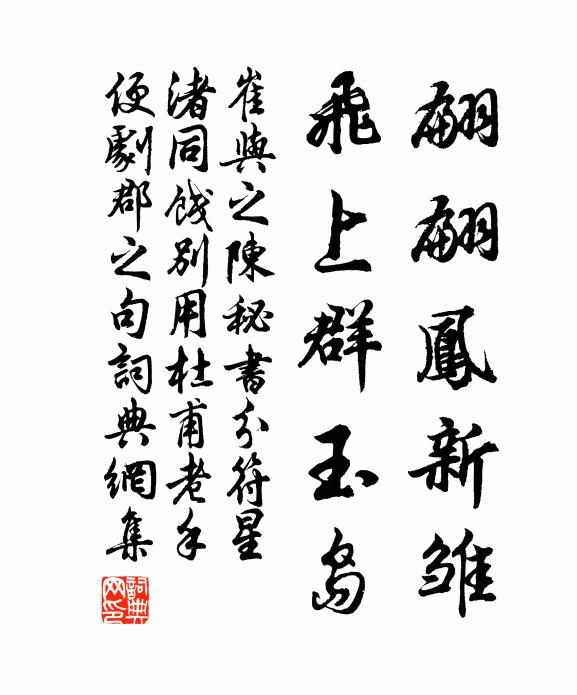 翩翩鳳新雛
飛上群玉島
崔與之陳秘書分符星
渚同餞別用杜甫老手
便劇郡之句詞典網集
詞典網印